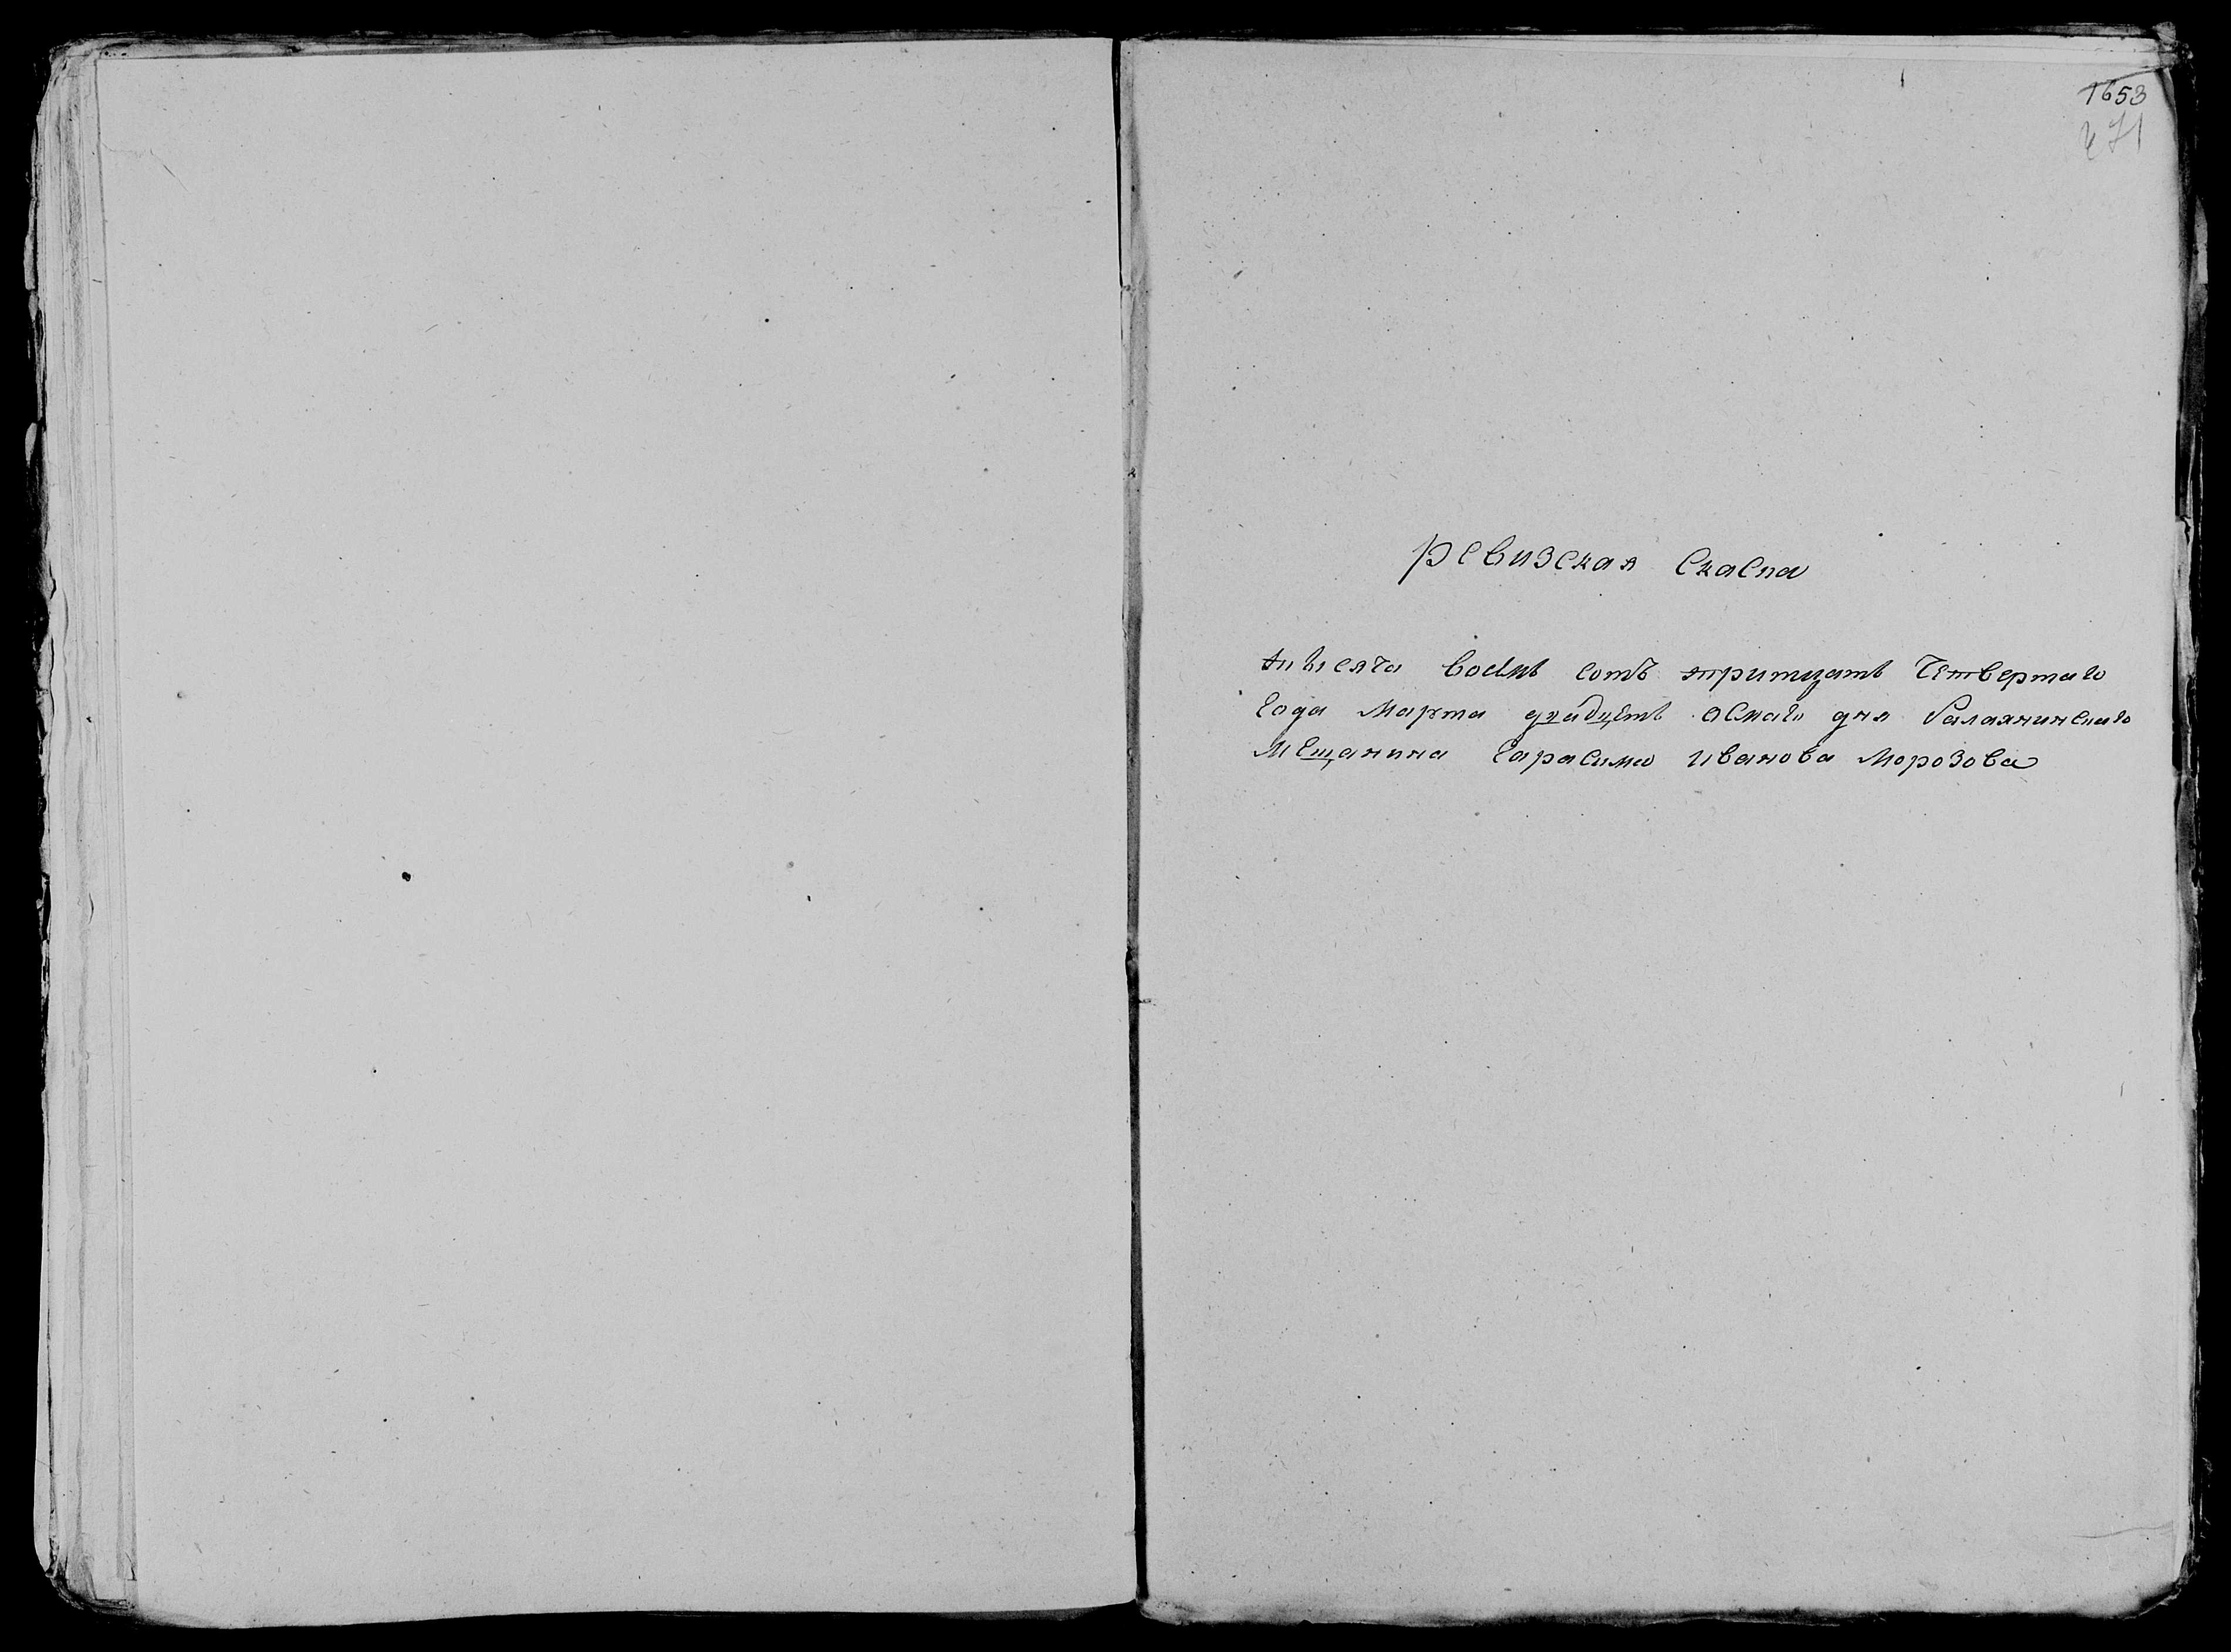 1653
271
Ревизская Скаска
тысяча восемь сотъ тритцать Четвертаго
года Марта двадцеть осмаго дня
Мещанина Гарасима Иванова Морозова